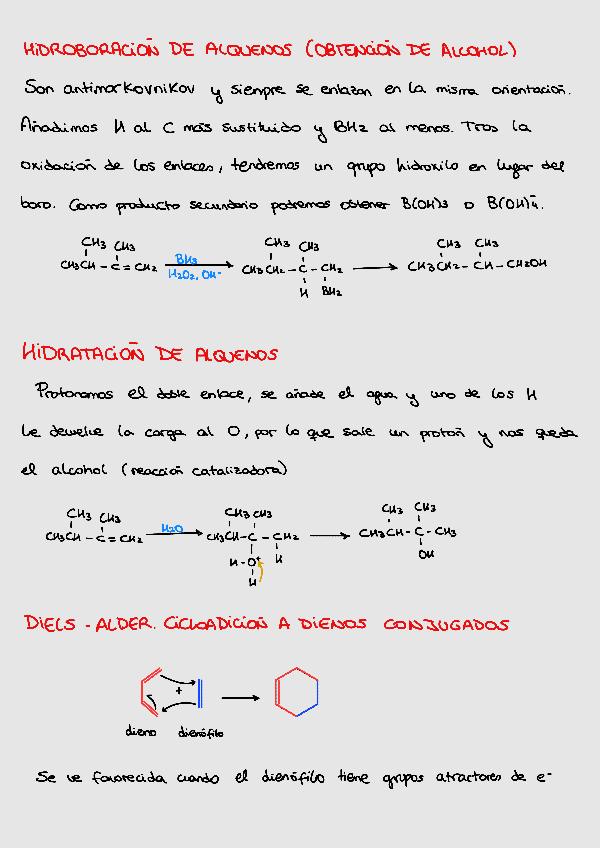 HIDROBORACIÓN DE ALQUENOS (OBTENCIÓN DE ALCOHOL)
Son antimarkovnikov y siempre se enlazan en la misma orientación.
Añadimos H al C más sustituido y BH2 al menos. Tras la
oxidación de los enlaces, tendremos un grupo hidroxilo en lugar del
boro. Como producto secundario podremos obtener B(OH)3 o B(OH)4⁻.
CH3 CH3
CH3CH - C = CH2
BH3
H2O2, OH⁻
CH3 CH3
CH3CH2 - C - CH2
H BH2
CH3 CH3
CH3CH2 - CH - CH2OH
HIDRATACIÓN DE ALQUENOS
Protonamos el doble enlace, se añade el agua y uno de los H
le devuelve la carga al O, por lo que sale un protón y nos queda
el alcohol (reacción catalizadora)
CH3 CH3
CH3CH - C = CH2
H2O
CH3 CH3
CH3CH - C - CH2
H - O⁺ H
H
CH3 CH3
CH3CH - C - CH3
OH
DIELS - ALDER. CICLOADICIÓN A DIENOS CONJUGADOS
+
dieno dienófilo
Se ve favorecida cuando el dienófilo tiene grupos atractores de e⁻